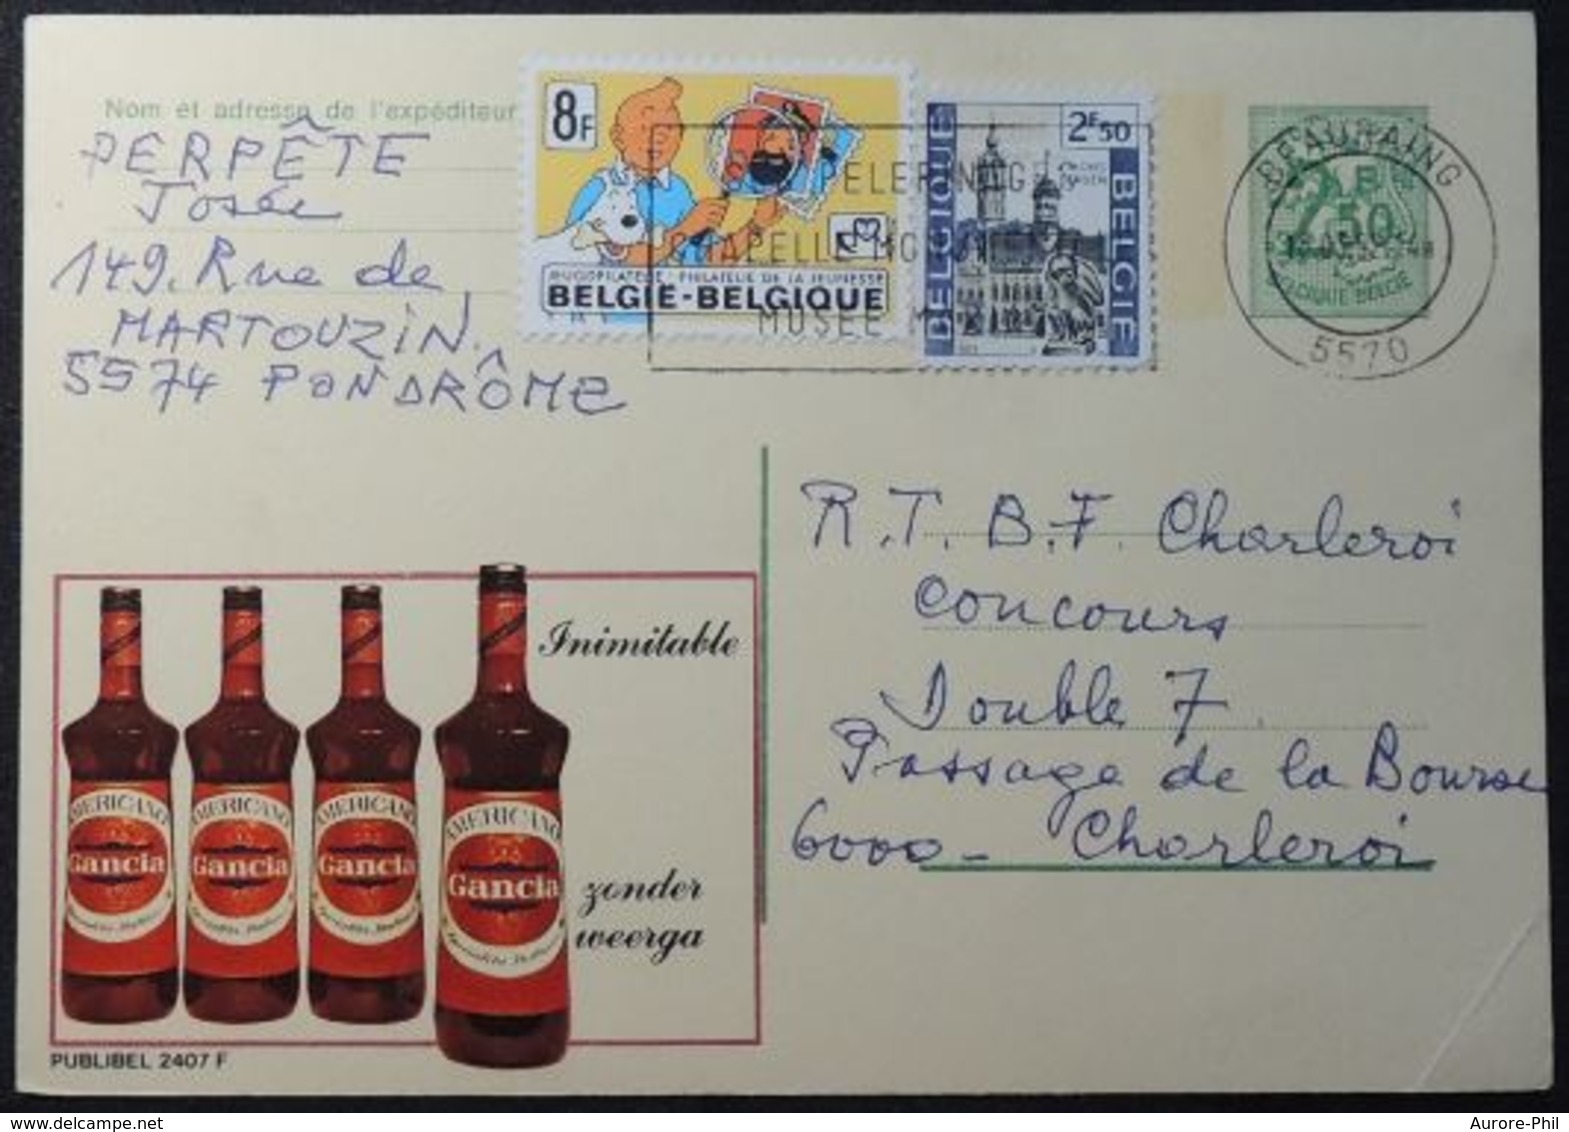 Nom et adresse de l'expéditeur
PERPÊTE
Josée
149. Rue de
MARTOUZIN.
5574 PONDRÔME
8F
JEUGDFILATELIE - PHILATELIE DE LA JEUNESSE
BELGIË-BELGIQUE
2F50
BELGIQUE
BELGIË
PELERINAGE
MUSEE
BEAURAING
50
BELGIQUE BELGIE
5570
R.T.B.F. Charleroi
Concours
Double 7
Passage de la Bourse
6000 - Charleroi
Inimitable
zonder
weerga
AMERICANO
Gancia
AMERICANO
Gancia
AMERICANO
Gancia
AMERICANO
Gancia
PUBLIBEL 2407 F
Aurore-Phil